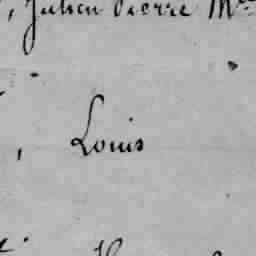 , Julien Pierre M
, Louis